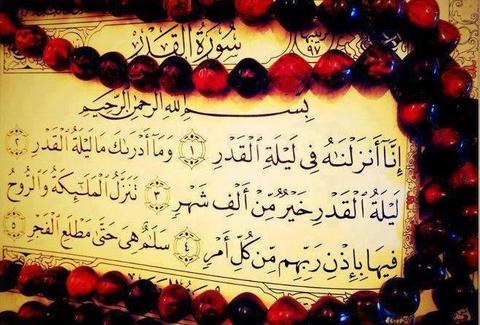 سُورَةُ القَدْرِ
ترتيبها ٩٧
بِسْمِ اللَّهِ الرَّحْمَٰنِ الرَّحِيمِ
إِنَّا أَنزَلْنَٰهُ فِي لَيْلَةِ الْقَدْرِ ١ وَمَا أَدْرَىٰكَ مَا لَيْلَةُ الْقَدْرِ ٢
لَيْلَةُ الْقَدْرِ خَيْرٌ مِّنْ أَلْفِ شَهْرٍ ٣ تَنَزَّلُ الْمَلَٰئِكَةُ وَالرُّوحُ
فِيهَا بِإِذْنِ رَبِّهِم مِّن كُلِّ أَمْرٍ ٤ سَلَٰمٌ هِيَ حَتَّىٰ مَطْلَعِ الْفَجْرِ ٥